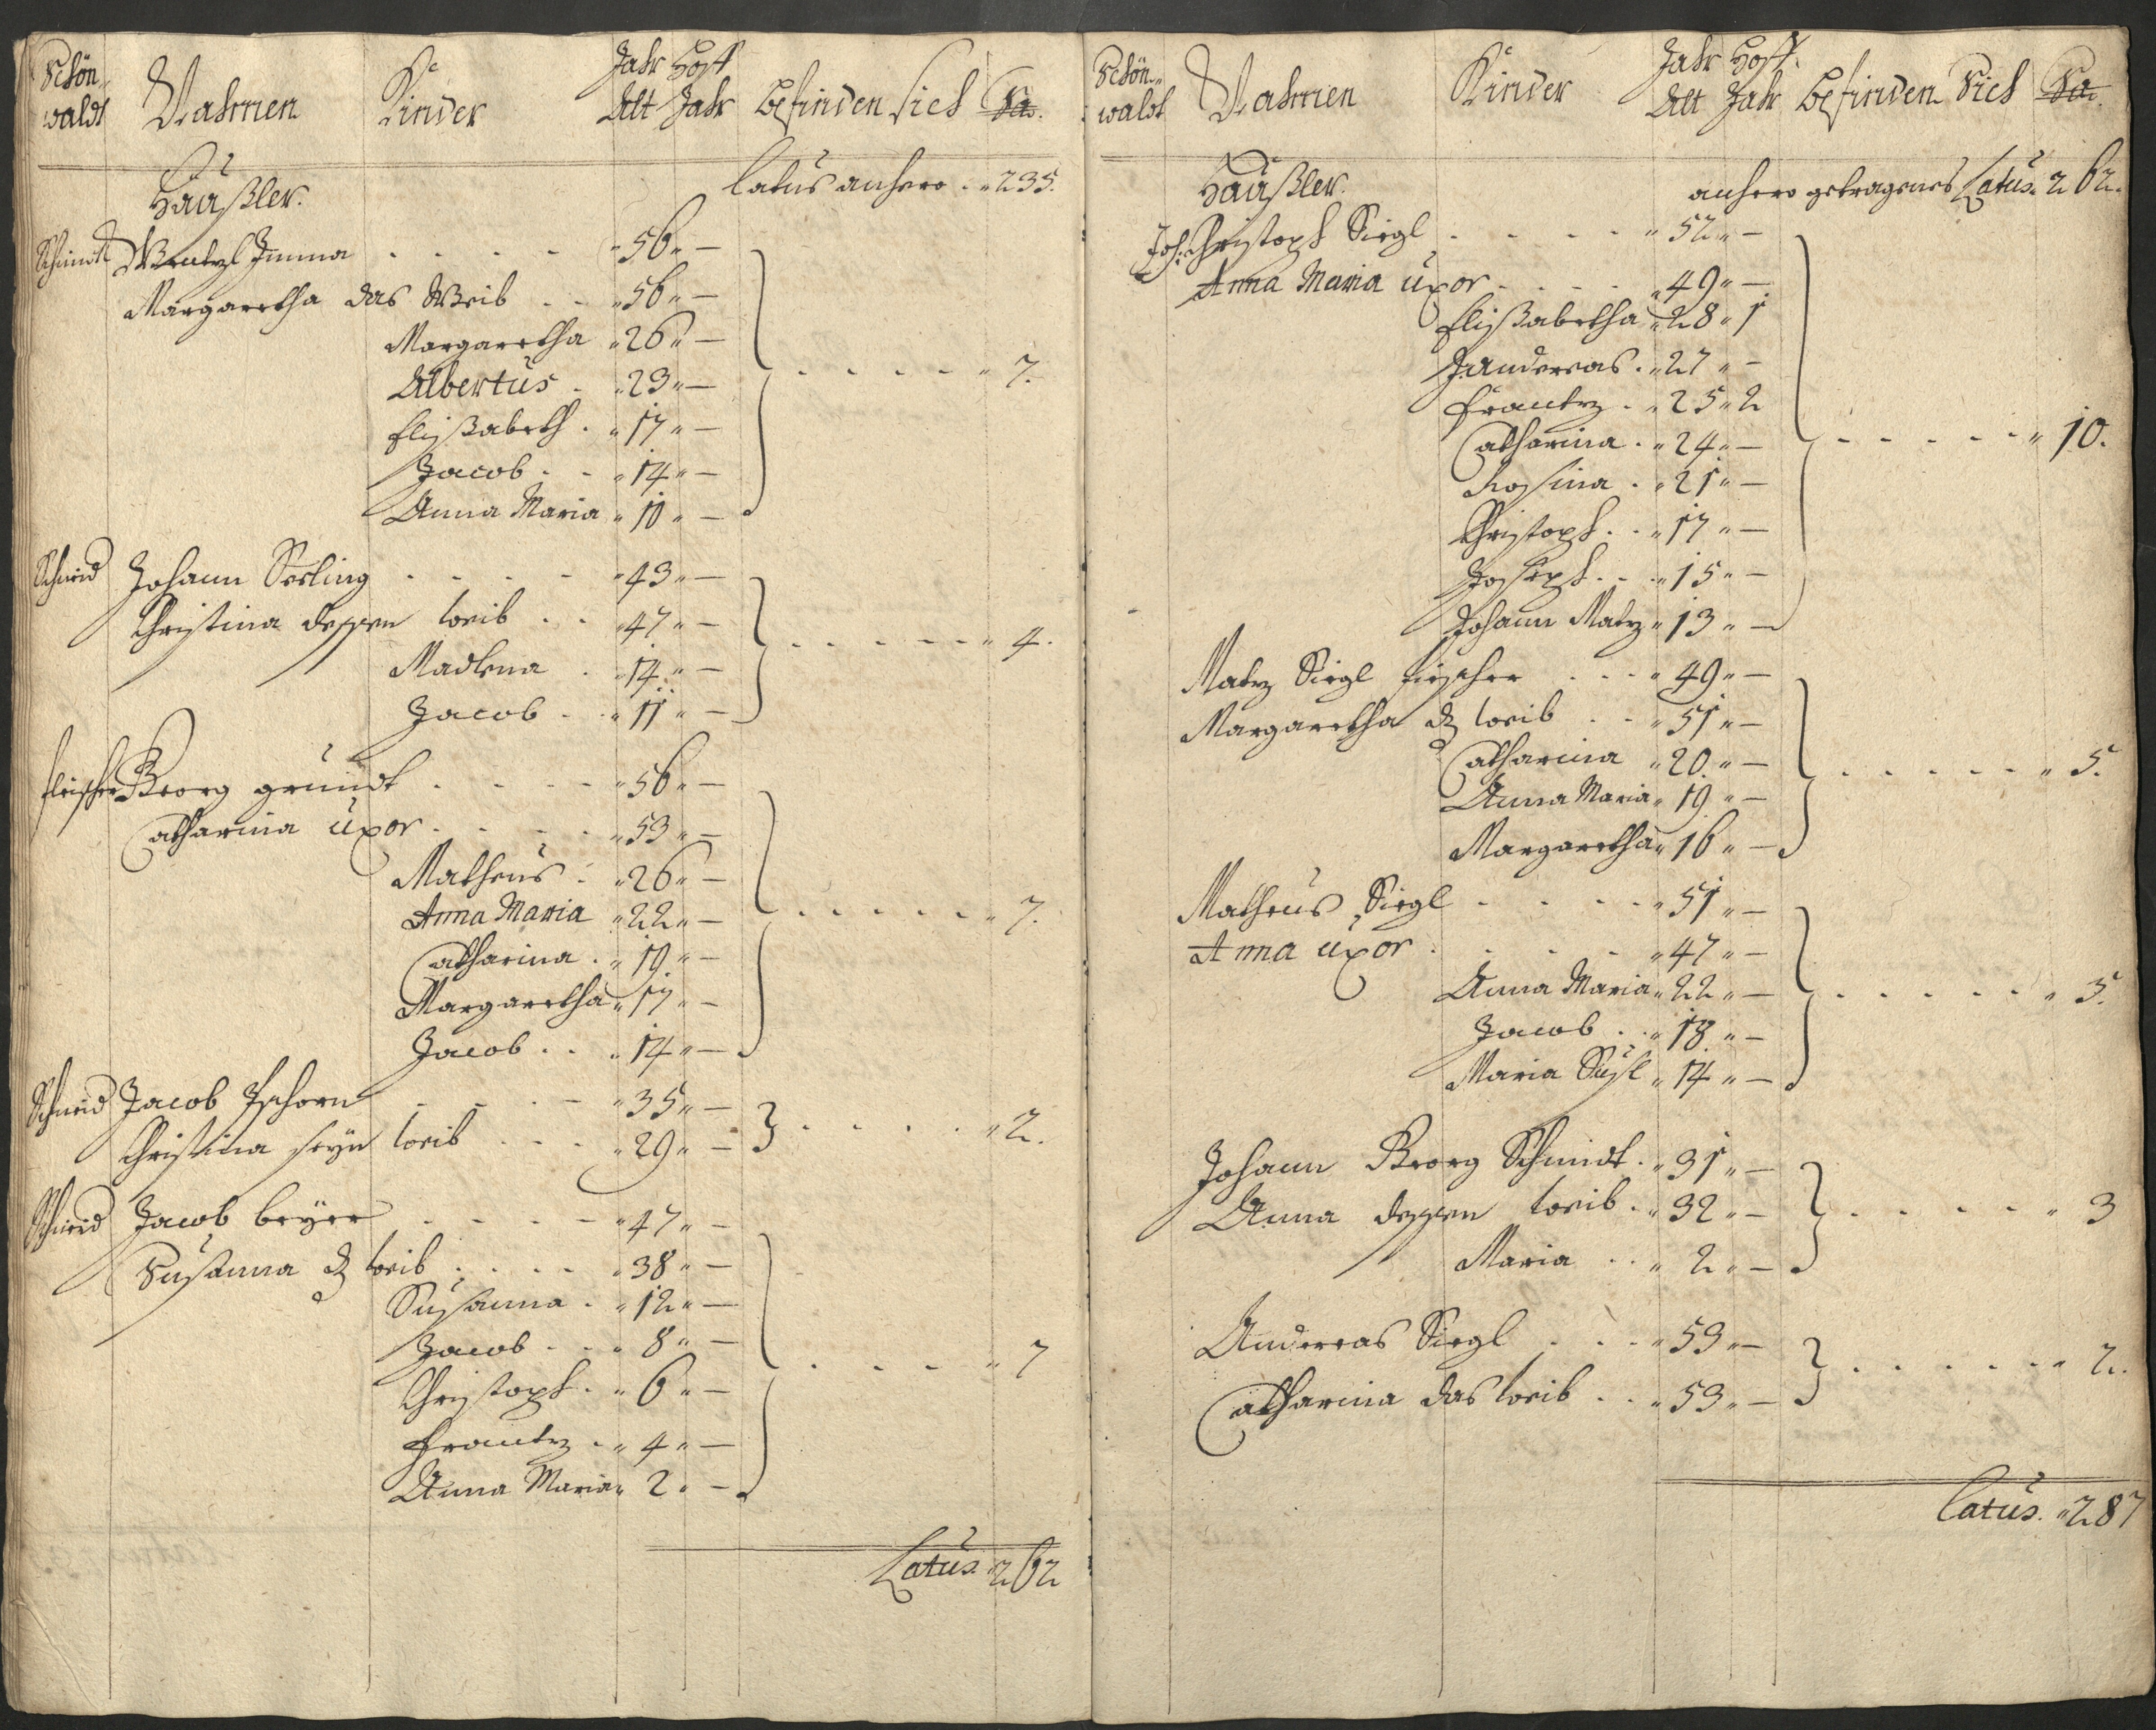 Schön-
waldt Nahmen Kinder Jahr Alt Hoff Jahr Befinden sich Sa.
Latus anhero . " 235.
Häußler.
Schmidt Wentzl Imma " 56 " —
Margaretha das Weib " 56 " —
Margaretha " 26 " —
Albertus " 23 " — 7.
Elißabeth " 17 " —
Jacob " 14 " —
Anna Maria " 10 " —
Schneid Johann Seeling " 43 " —
Christina dessen weib " 47 " —
4.
Madlena " 14 " —
Jacob " 11 " —
fleischer Georg grundt " 56 " —
Catharina uxor " 53 " —
Matheus " 26 " —
Anna Maria " 22 " — 7.
Catharina " 19 " —
Margaretha " 17 " —
Jacob " 14 " —
Schneid Jacob " 35 " —
2.
Christina seyn weib " 29 " —
Schneid Jacob beyer " 47 " —
Susanna d weib " 38 " —
Susanna " 12 " —
Jacob " 8 " — 7
Christoph " 6 " —
Frantz " 4 " —
Anna Maria " 2 " —
Latus " 262
Schön-
waldt Nahmen Kinder Jahr Alt Hoff. Jahr Befinden Sich Sa.
anhero getragenes Latus. 262.
Häußler.
Joh: Christoph Siegl " 52 " —
Anna Maria uxor " 49 " —
Elißabetha " 28 " 1
Andereas " 27 " —
Frantz " 25 " 2
Catharina " 24 " — 10.
Rosina " 21 " —
Christoph " 17 " —
Joseph " 15 " —
Johann Matz " 13 " —
Matz Siegl " 49 " —
Margaretha d weib " 51 " —
Catharina " 20 " — 5.
Anna Maria " 19 " —
Margaretha " 16 " —
Matheus Siegl " 51 " —
Anna uxor " 47 " —
Anna Maria " 22 " — 5.
Jacob " 18 " —
Maria Susl " 14 " —
Johann Georg Schmidt " 31 " —
Anna dessen weib " 32 " — 3
Maria " 2 " —
Andereas Siegl " 53 " —
2.
Catharina das weib " 53 " —
Latus. " 287